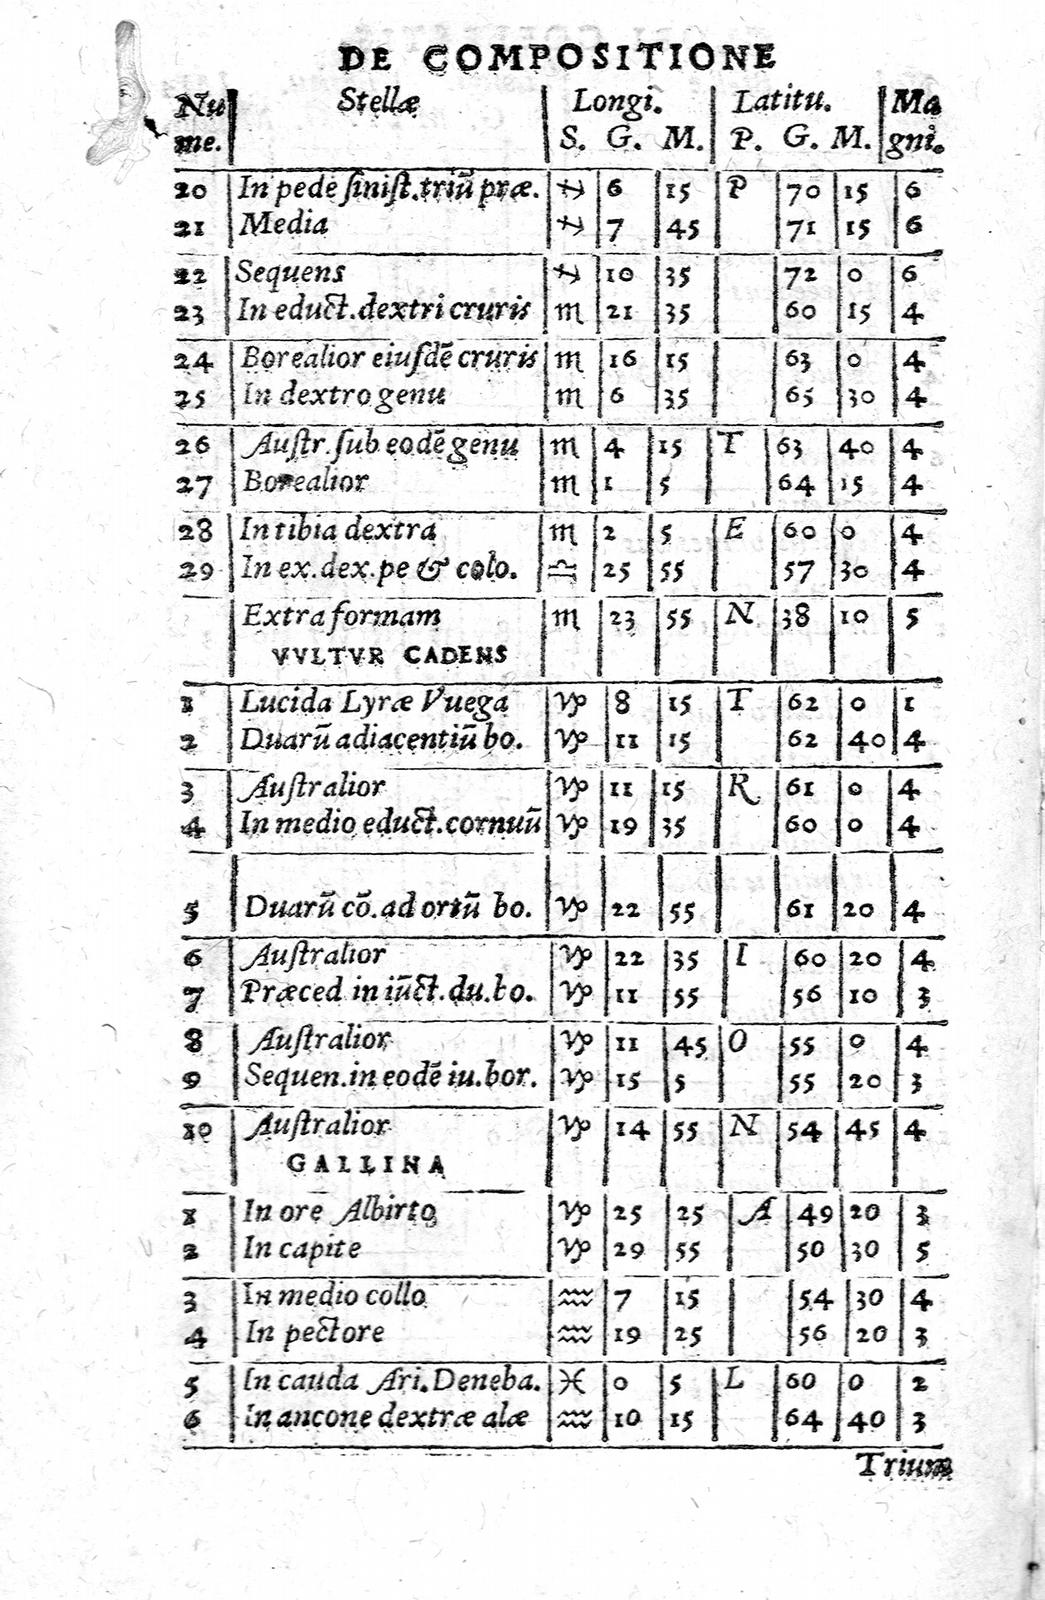 DE COMPOSITIONE
Nu Stellæ Longi. Latitu. Ma
me. S. G. M. P. G. M. gni.
20 In pede sinist.triū præ. ♐ 6 15 P 70 15 6
21 Media ♐ 7 45 71 15 6
22 Sequens ♐ 10 35 72 0 6
23 In educt.dextri cruris ♏ 21 35 60 15 4
24 Borealior eiusdē cruris ♏ 16 15 63 0 4
25 In dextro genu ♏ 6 35 65 30 4
26 Austr.sub eodē genu ♏ 4 15 T 63 40 4
27 Borealior ♏ 1 5 64 15 4
28 In tibia dextra ♏ 2 5 E 60 0 4
29 In ex.dex.pe & colo. ♎ 25 55 57 30 4
Extra formam ♏ 23 55 N 38 10 5
VVLTVR CADENS
1 Lucida Lyræ Vuega ♑ 8 15 T 62 0 1
2 Duarū adiacentiū bo. ♑ 11 15 62 40 4
3 Australior ♑ 11 15 R 61 0 4
4 In medio educt.cornuū ♑ 19 35 60 0 4
5 Duarū cō.ad ortū bo. ♑ 22 55 61 20 4
6 Australior ♑ 22 35 I 60 20 4
7 Præced in iūct.du.bo. ♑ 11 55 56 10 3
8 Australior ♑ 11 45 O 55 0 4
9 Sequen.in eodē iu.bor. ♑ 15 5 55 20 3
10 Australior ♑ 14 55 N 54 45 4
GALLINA
1 In ore Albirto ♑ 25 25 A 49 20 3
2 In capite ♑ 29 55 50 30 5
3 In medio collo ♒ 7 15 54 30 4
4 In pectore ♒ 19 25 56 20 3
5 In cauda Ari.Deneba. ♓ 0 5 L 60 0 2
6 In ancone dextræ alæ ♒ 10 15 64 40 3
Trium